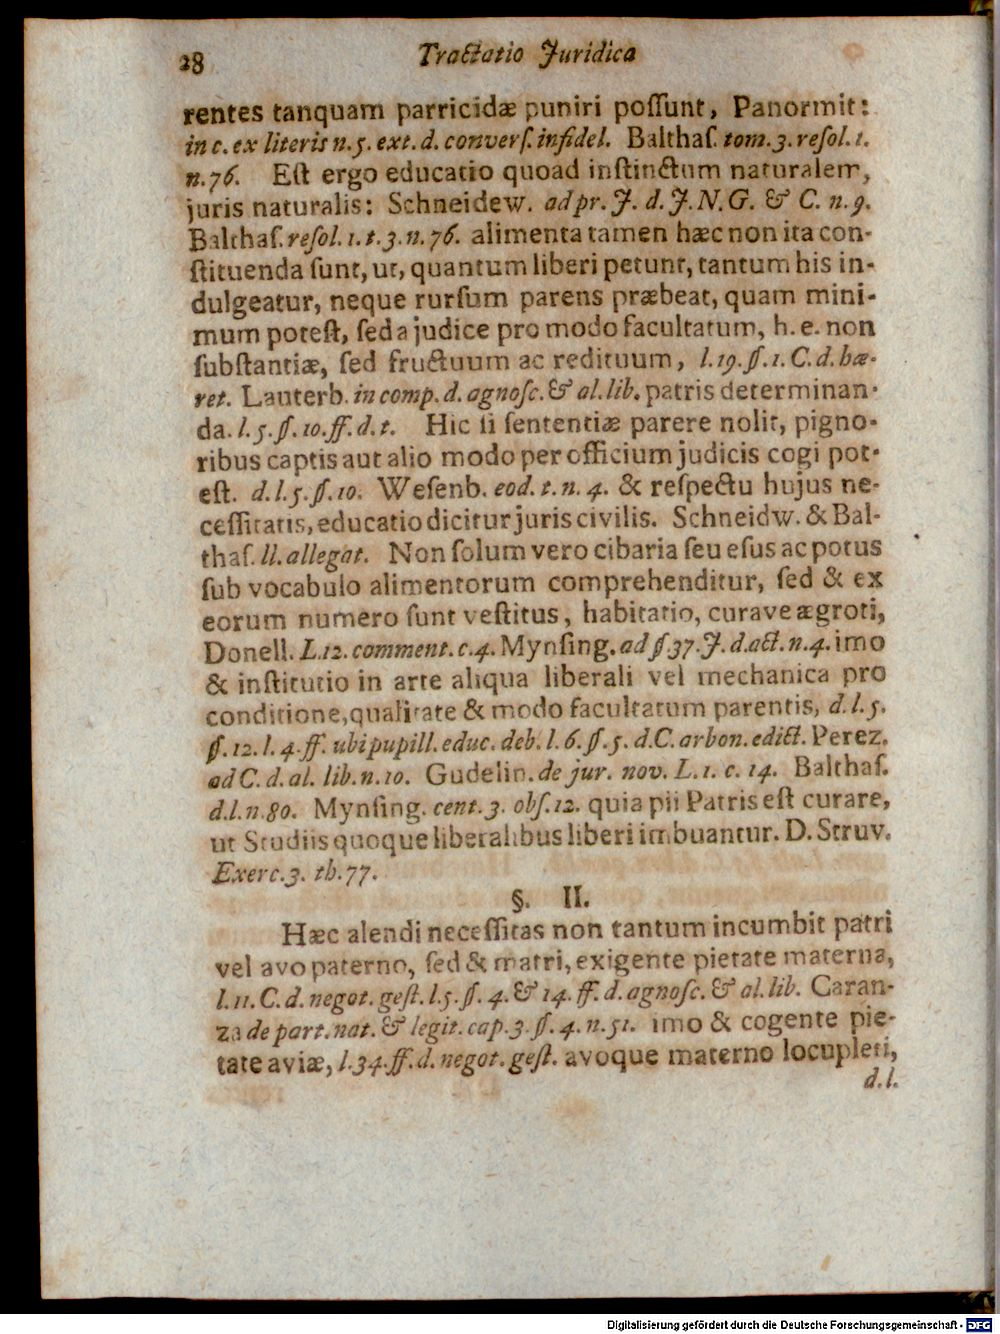 28 Tractatio Juridica
rentes tanquam parricidæ puniri poſſunt, Panormit:
in c. ex literis n. 5. ext. d. converſ. infidel. Balthaſ. tom. 3. reſol. 1.
n. 76. Eſt ergo educatio quoad inſtinctum naturalem,
juris naturalis: Schneidew. ad pr. J. d. J. N. G. & C. n. 9.
Balthaſ. reſol. 1. t. 3. n. 76. alimenta tamen hæc non ita con-
ſtituenda ſunt, ut, quantum liberi petunt, tantum his in-
dulgeatur, neque rurſum parens præbeat, quam mini-
mum poteſt, ſed a judice pro modo facultatum, h. e. non
ſubſtantiæ, ſed fructuum ac redituum, l. 19. §. 1. C. d. hæ-
ret. Lauterb. in comp. d. agnoſc. & al. lib. patris determinan-
da. l. 5. §. 10. ff. d. t. Hic ſi ſententiæ parere nolit, pigno-
ribus captis aut alio modo per officium judicis cogi pot-
eſt. d. l. 5. §. 10. Weſenb. eod. t. n. 4. & reſpectu hujus ne-
ceſſitatis, educatio dicitur juris civilis. Schneidw. & Bal-
thaſ. ll. allegat. Non ſolum vero cibaria ſeu eſus ac potus
ſub vocabulo alimentorum comprehenditur, ſed & ex
eorum numero ſunt veſtitus, habitatio, curave ægroti,
Donell. L. 12. comment. c. 4. Mynſing. ad §. 37. J. d. act. n. 4. imo
& inſtitutio in arte aliqua liberali vel mechanica pro
conditione, qualitate & modo facultatum parentis, d. l. 5.
§. 12. l. 4. ff. ubi pupill. educ. deb. l. 6. §. 5. d. C. arbon. edict. Perez.
ad C. d. al. lib. n. 10. Gudelin. de jur. nov. L. 1. c. 14. Balthaſ.
d. l. n. 80. Mynſing. cent. 3. obſ. 12. quia pii Patris eſt curare,
ut Studiis quoque liberalibus liberi imbuantur. D. Struv.
Exerc. 3. th. 77.
§. II.
Hæc alendi neceſſitas non tantum incumbit patri
vel avo paterno, ſed & matri, exigente pietate materna,
l. 11. C. d. negot. geſt. l. 5. §. 4. & 14. ff. d. agnoſc. & al. lib. Caran-
za de part. nat. & legit. cap. 3. §. 4. n. 51. imo & cogente pie-
tate aviæ, l. 34. ff. d. negot. geſt. avoque materno locupleti,
d. l.
Digitalisierung gefördert durch die Deutsche Forschungsgemeinschaft - DFG